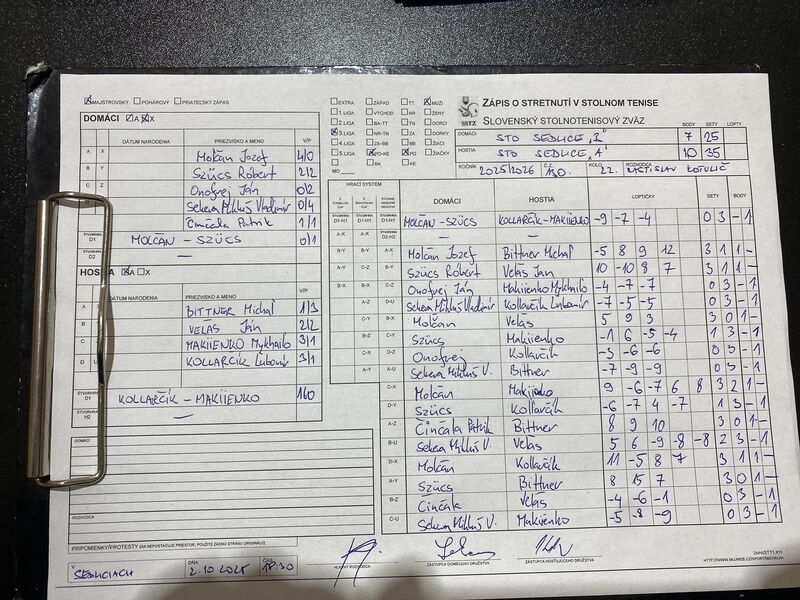 MAJSTROVSKÝ POHÁROVÝ PRIATEĽSKÝ ZÁPAS
DOMÁCI A X
DÁTUM NARODENIA PRIEZVISKO A MENO V/P
A X Molčan Jozef 4/0
B Y Szücs Róbert 2/2
C Z Onofrej Ján 0/2
Sekera Mikluš Vladimír 0/4
Činčala Patrik 1/1
ŠTVORHRA D1 MOLČAN - SZÜCS 0/1
ŠTVORHRA D2 —
HOSTIA A X
DÁTUM NARODENIA PRIEZVISKO A MENO V/P
A BITTNER Michal 1/3
B VELAS Ján 2/2
C MAKIIENKO Mykhailo 3/1
D U KOLLARČÍK Ľubomír 3/1
ŠTVORHRA D1 KOLLARČÍK - MAKIIENKO 1/0
ŠTVORHRA H2 —
DOMÁCI
ROZHODCA
PRIPOMIENKY/PROTESTY (AK NEPOSTAČUJE PRIESTOR, POUŽITE ZADNÚ STRANU ORIGINÁLU)
V SEDLICIACH DŇA 2.10.2025 ČAS 18:30
EXTRA ZÁPAD TT MUŽI
1. LIGA VÝCHOD NR ŽENY
2. LIGA BA-TT TN DORCI
3. LIGA NR-TN ZA DORKY
4. LIGA ZA-BB BB ŽIACI
5. LIGA PO-KE PO ŽIAČKY
MO BA KE
SSTZ
ZÁPIS O STRETNUTÍ V STOLNOM TENISE
SLOVENSKÝ STOLNOTENISOVÝ ZVÄZ
BODY SETY LOPTY
DOMÁCI STO SEDLICE "B" 7 25
HOSTIA STO SEDLICE "A" 10 35
ROČNÍK 2025/2026 Č.Z. KOLO 22. ROZHODCA RASTISLAV KOTULIČ
HRACÍ SYSTÉM DOMÁCI HOSTIA LOPTIČKY SETY BODY
D1-H1 D1-H1 D1-H1 MOLČAN - SZÜCS KOLLARČÍK - MAKIIENKO -9 -7 -4 0 3 - 1
A-X A-X D2-H2 —
B-Y B-Y A-X Molčan Jozef Bittner Michal -5 8 9 12 3 1 1 -
A-Y C-Z B-Y Szücs Róbert Velas Jan 10 -10 8 7 3 1 1 -
B-X B-X C-Z Onofrej Ján Makiienko Mykhailo -4 -7 -7 0 3 - 1
A-Z D-U Sekera Mikluš Vladimír Kollarčík Ľubomír -7 -5 -5 0 3 - 1
C-Y B-X Molčan Velas 5 9 3 3 0 1 -
B-Z C-Y Szücs Makiienko -1 6 -5 -4 1 3 - 1
C-X D-Z Onofrej Kollarčík -3 -6 -6 0 3 - 1
A-Y A-U Sekera Mikluš V. Bittner -7 -9 -9 0 3 - 1
C-X Molčan Makiienko 9 -6 -7 6 8 3 2 1 -
D-Y Szücs Kollarčík -6 -7 4 -7 1 3 - 1
A-Z Činčala Patrik Bittner 8 9 10 3 0 1 -
B-U Sekera Mikluš V. Velas 5 6 -9 -8 -8 2 3 - 1
D-X Molčan Kollarčík 11 -5 8 7 3 1 1 -
A-Y Szücs Bittner 8 15 7 3 0 1 -
B-Z Činčala Velas -4 -6 -1 0 3 - 1
C-U Sekera Mikluš V. Makiienko -5 -8 -9 0 3 - 1
HLAVNÝ ROZHODCA ZÁSTUPCA DOMÁCEHO DRUŽSTVA ZÁSTUPCA HOSŤUJÚCEHO DRUŽSTVA